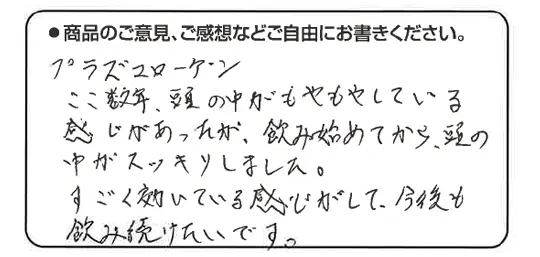 ●商品のご意見、ご感想などご自由にお書きください。
プラズマローゲン
ここ数年、頭の中がもやもやしている
感じがあったが、飲み始めてから、頭の
中がスッキリしました。
すごく効いている感じがして、今後も
飲み続けたいです。